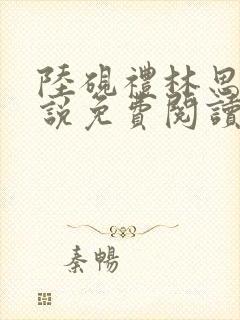 陸硯禮林思
說免費閱讀
秦暢